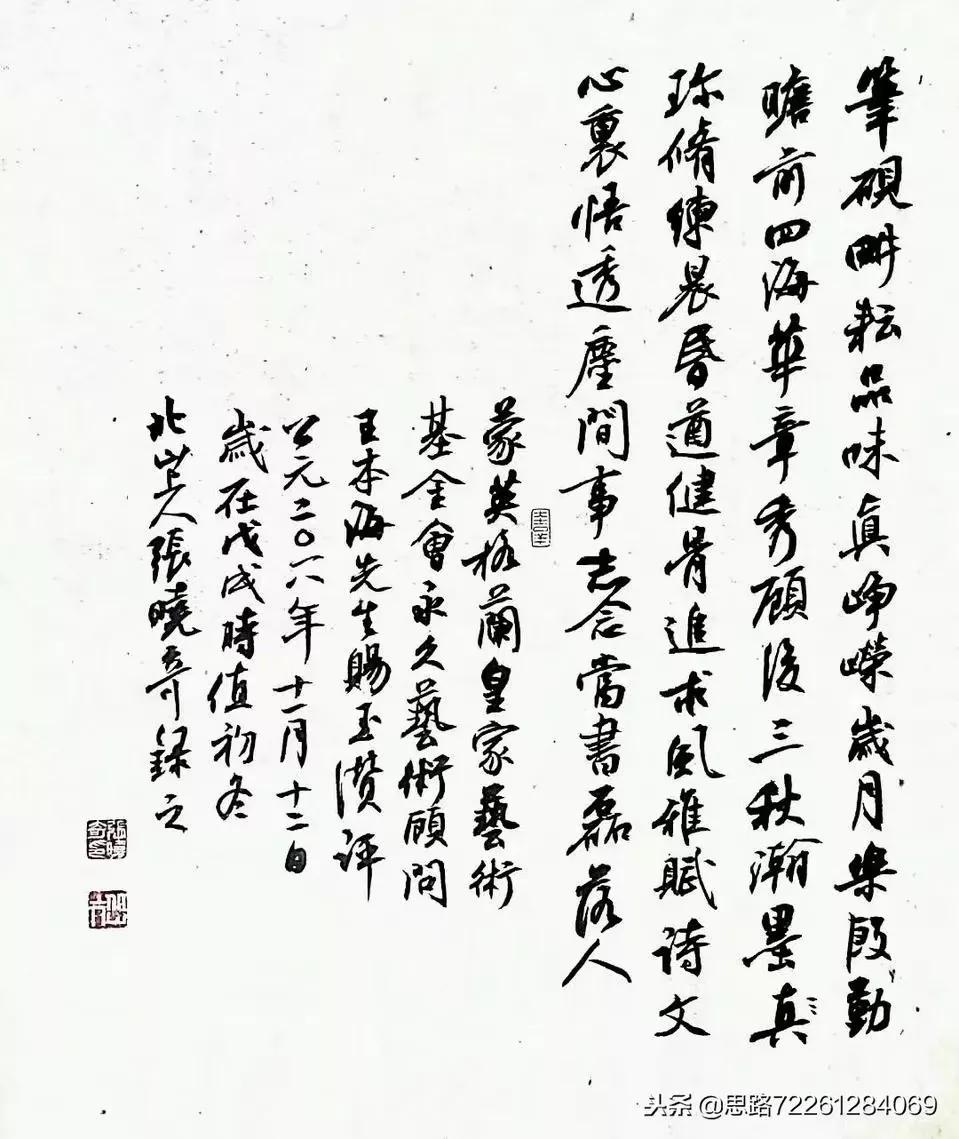 筆硯畊耘品味真崢嶸歲月樂殷勤
瞻前四海華章秀顧後三秋瀚墨真
珎脩練晨昏遒健骨進求風雅賦诗文
心裏悟透塵間事志合當書磊落人
蒙英格蘭皇家藝術
基金會永久藝術顧問
王本海先生賜玉讚評
公元二〇一八年十一月十二日
歲在戊戌時值初冬
北山人張曉奇録之
头条 @思路72261284069